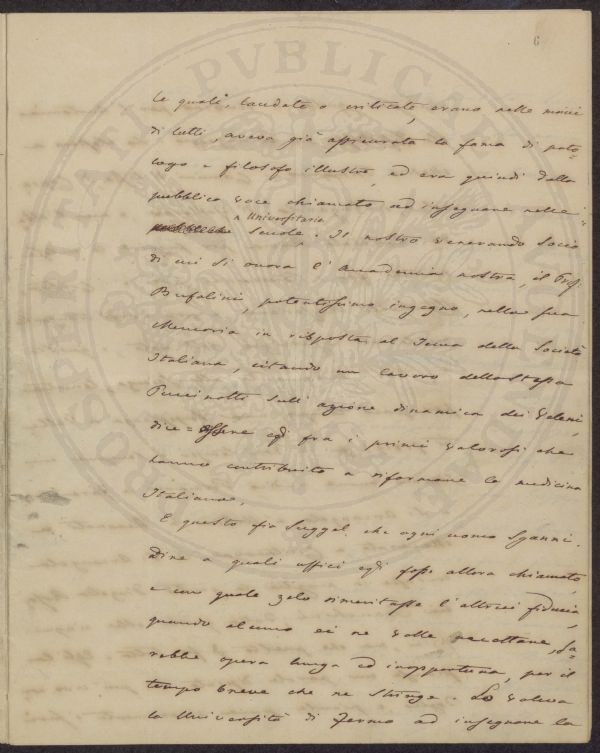 6
le quali, laudate o criticate, erano nelle mani
di tutti, aveva già assicurata la fama di pato=
logo e filosofo illustre, ed era quindi dalla
pubblica voce chiamato ad insegnare nelle
Universitarie
scuole. Il nostro venerando Socio
di cui si onora l'Accademia nostra, il Prof.
Bufalini, potentissimo ingegno, nella sua
Memoria in risposta al Tema della Società
Italiana, citando un lavoro dello stesso
Puccinotti sull'azione dinamica dei Veleni,
dice = essere egli fra i primi valorosi che
hanno contribuito a riformare la medicina
Italiana.
E questo fia suggel che ogni uomo sganni.
Dire a quali uffici egli fosse allora chiamato,
e con quale zelo rimeritasse l'altrui fiducia,
quando alcuno ei ne volle accettare, sa=
rebbe opera lunga ed inopportuna, per il
tempo breve che ne stringe. Lo voleva
la Università di Fermo ad insegnare la
PROSPERITATI PUBLICAE